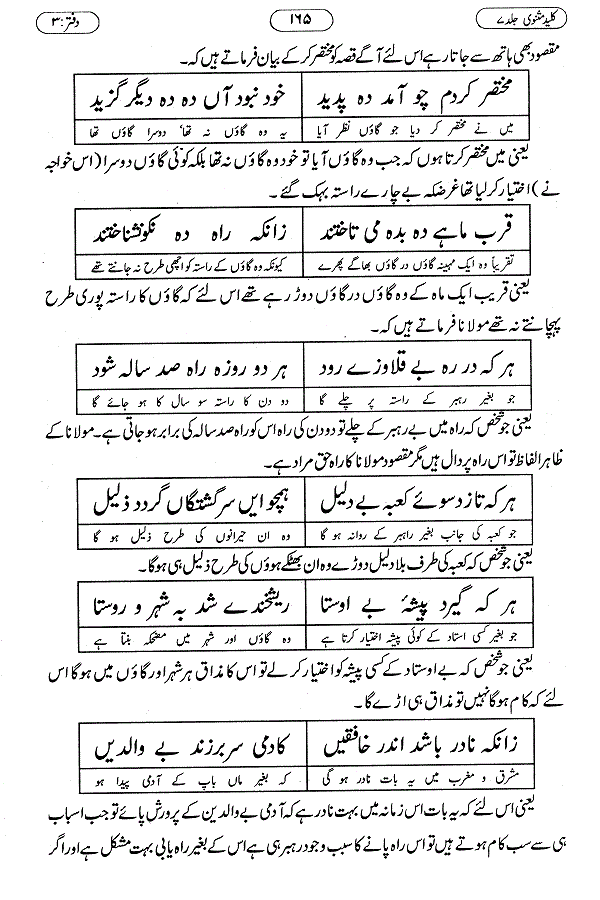 کلید مثنوی جلد ۷ ۱۶۵ دفتر: ۳
مقصود بھی ہاتھ سے جاتا رہے اس لئے آگے قصہ کو مختصر کر کے بیان فرماتے ہیں کہ۔
مختصر کردم چو آمد دہ پدید خود نبود آں دہ دہ دیگر گزید
میں نے مختصر کر دیا جو گاؤں نظر آیا یہ وہ گاؤں نہ تھا، دوسرا گاؤں تھا
یعنی میں مختصر کرتا ہوں کہ جب وہ گاؤں آیا تو خود وہ گاؤں نہ تھا بلکہ کوئی گاؤں دوسرا (اس خواجہ
نے) اختیار کر لیا تھا غرضکہ بے چارے راستہ بہک گئے۔
قرب ماہے دہ بدہ می تاختند زانکہ راہ دہ نکو نشناختند
تقریباً وہ ایک مہینہ گاؤں در گاؤں بھاگے پھرے کیونکہ وہ گاؤں کے راستہ کو اچھی طرح نہ جانتے تھے
یعنی قریب ایک ماہ کے وہ گاؤں در گاؤں دوڑ رہے تھے اس لئے کہ گاؤں کا راستہ پوری طرح
پہچانتے نہ تھے مولانا فرماتے ہیں کہ۔
ہر کہ در رہ بے قلاوزے رود ہر دو روزہ راہ صد سالہ شود
جو بغیر رہبر کے راستہ پر چلے گا دو دن کا راستہ سو سال کا ہو جائے گا
یعنی جو شخص کہ راہ میں بے رہبر کے چلے تو دو دن کی راہ اس کو راہ صد سالہ کی برابر ہو جاتی ہے۔ مولانا کے
ظاہر الفاظ تو اس راہ پر دال ہیں مگر مقصود مولانا کا راہ حق مراد ہے۔
ہر کہ تازد سوئے کعبہ بے دلیل ہمچو ایں سرگشتگاں گردد ذلیل
جو کعبہ کی جانب بغیر راہبر کے روانہ ہو گا وہ ان حیرانوں کی طرح ذلیل ہو گا
یعنی جو شخص کہ کعبہ کی طرف بلا دلیل دوڑے وہ ان بھٹکے ہوؤں کی طرح ذلیل ہی ہوگا۔
ہر کہ گیرد پیشۂ بے اوستا ریشخندے شد بہ شہر و روستا
جو بغیر کسی استاد کے کوئی پیشہ اختیار کرتا ہے وہ گاؤں اور شہر میں مضحکہ بنتا ہے
یعنی جو شخص کہ بے اوستاد کے کسی پیشہ کو اختیار کر لے تو اس کا مذاق ہر شہر اور گاؤں میں ہوگا اس
لئے کہ کام ہوگا نہیں تو مذاق ہی اڑے گا۔
زانکہ نادر باشد اندر خافقیں کادمی سر برزند بے والدیں
مشرق و مغرب میں یہ بات نادر ہو گی کہ بغیر ماں باپ کے آدمی پیدا ہو
یعنی اس لئے کہ یہ بات اس زمانہ میں بہت نادر ہے کہ آدمی بے والدین کے پرورش پائے تو جب اسباب
ہی سے سب کام ہوتے ہیں تو اس راہ پانے کا سبب وجود رہبر ہی ہے اس کے بغیر راہ یابی بہت مشکل ہے اور اگر